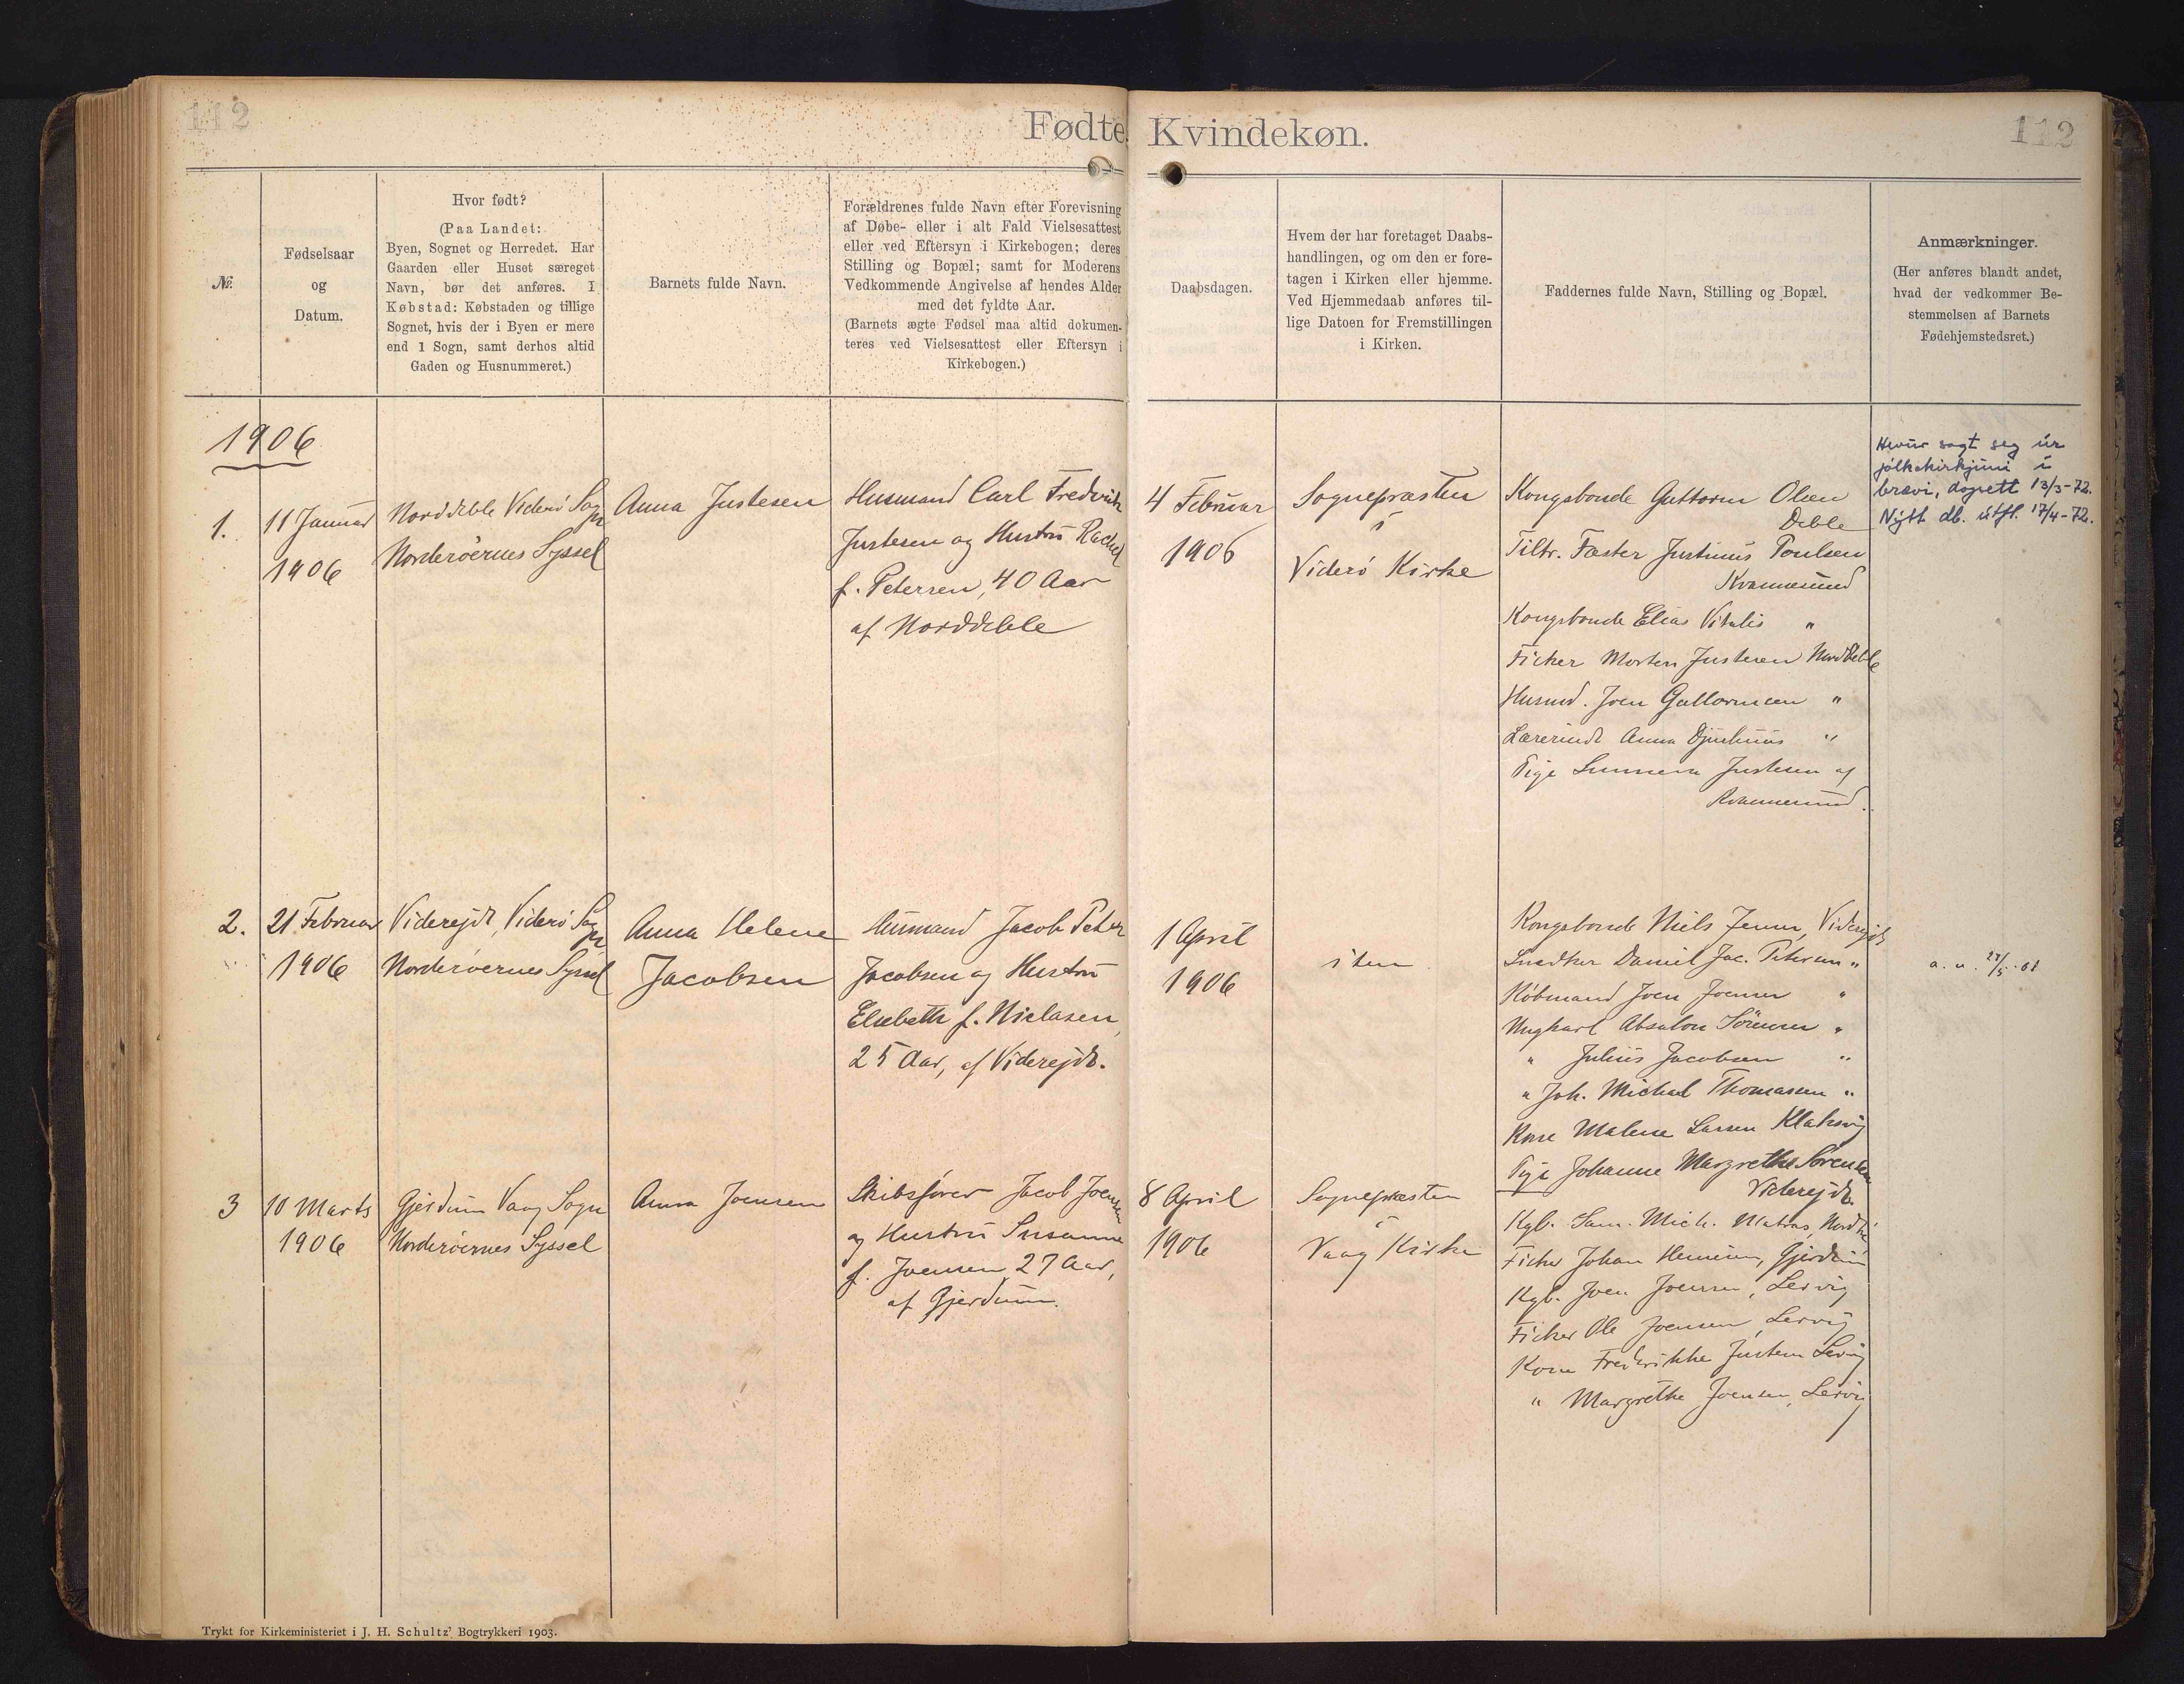 112
Fødte Kvindekøn.
112
№.
Fødselsaar
og
Datum.
Hvor født?
(Paa Landet:
Byen, Sognet og Herredet. Har
Gaarden eller Huset særeget
Navn, bør det anføres. I
Købstad: Købstaden og tillige
Sognet, hvis der i Byen er mere
end 1 Sogn, samt derhos altid
Gaden og Husnummeret.)
Barnets fulde Navn.
Forældrenes fulde Navn efter Forevisning
af Døbe- eller i alt Fald Vielsesattest
eller ved Eftersyn i Kirkebogen; deres
Stilling og Bopæl; samt for Moderens
Vedkommende Angivelse af hendes Alder
med det fyldte Aar.
(Barnets ægte Fødsel maa altid dokumen-
teres ved Vielsesattest eller Eftersyn i
Kirkebogen.)
Daabsdagen.
Hvem der har foretaget Daabs-
handlingen, og om den er fore-
tagen i Kirken eller hjemme.
Ved Hjemmedaab anføres til-
lige Datoen for Fremstillingen
i Kirken.
Faddernes fulde Navn, Stilling og Bopæl.
Anmærkninger.
(Her anføres blandt andet,
hvad der vedkommer Be-
stemmelsen af Barnets
Fødehjemstedsret.)
1906
1.
11 Januar
1906
Norddeble Viderö Sogn
Norderöernes Syssel
Anna Justesen
Husmand Carl Fredrik
Justesen og Hustru Rachel
f. Petersen, 40 Aar
af Norddeble
4 Februar
1906
Sognepræsten
i
Viderö Kirke
Kongsbonde Guttorm Olsen
Deble
Tiltr. Fæster Justinus Poulsen
Kvannesund
Kongsbonde Elias Vitalis "
Ficker Morten Justesen Norddeble
Husmd. Joen Guttormsen "
Lærerinde Anna Djurhuus "
Pige Sunneva Justesen af
Kvannesund.
Hevur sagt seg úr
fólkakirkjuni í
brævi, dagsett 13/3-72.
Nýtt db. útfl. 17/4-72.
2.
21 Februar
1906
Viderejde, Viderö Sogn
Norderöernes Syssel
Anna Helene
Jacobsen
Husmand Jacob Peter
Jacobsen og Hustru
Elsebeth f. Niclasen,
25 Aar, af Viderejde.
1 April
1906
item
Kongsbonde Niels Jensen, Viderejde
Snedker Daniel Jac. Petersen "
Købmand Joen Joensen "
Ungkarl Absalon Sörensen "
" Julius Jacobsen "
" Joh. Michael Thomassen "
Kone Malene Larsen Klaksvig
Pige Johanne Margrethe Sørensen
Viderejde.
a. u. /5-61
3
10 Marts
1906
Gjerdum Vaag Sogn
Norderöernes Syssel
Anna Joensen
Skibsfører Jacob Joensen
og Hustru Susanne
f. Joensen 27 Aar,
af Gjerdum.
8 April
1906
Sognepræsten
i
Vaag Kirke
Kgb. Sam. Mich. Matras,
Ficker Johan Heinesen, Gjerdum
Kgb. Joen Joensen, Lervig
Ficker Ole Joensen, Lervig
Kone Fredrikke Justesen Lervig
" Margrethe Joensen, Lervig
Trykt for Kirkeministeriet i J. H. Schultz' Bogtrykkeri 1903.